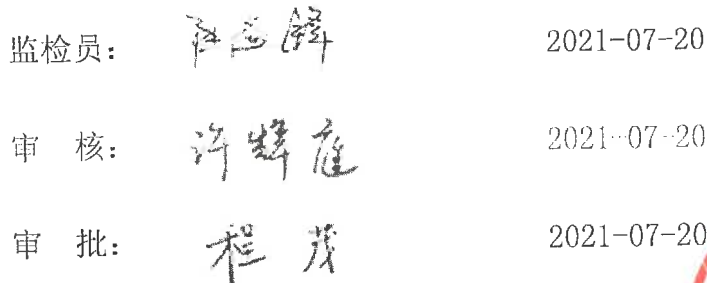 监检员： 2021-07-20
审 核： 许辉庭 2021-07-20
审 批： 程茂 2021-07-20